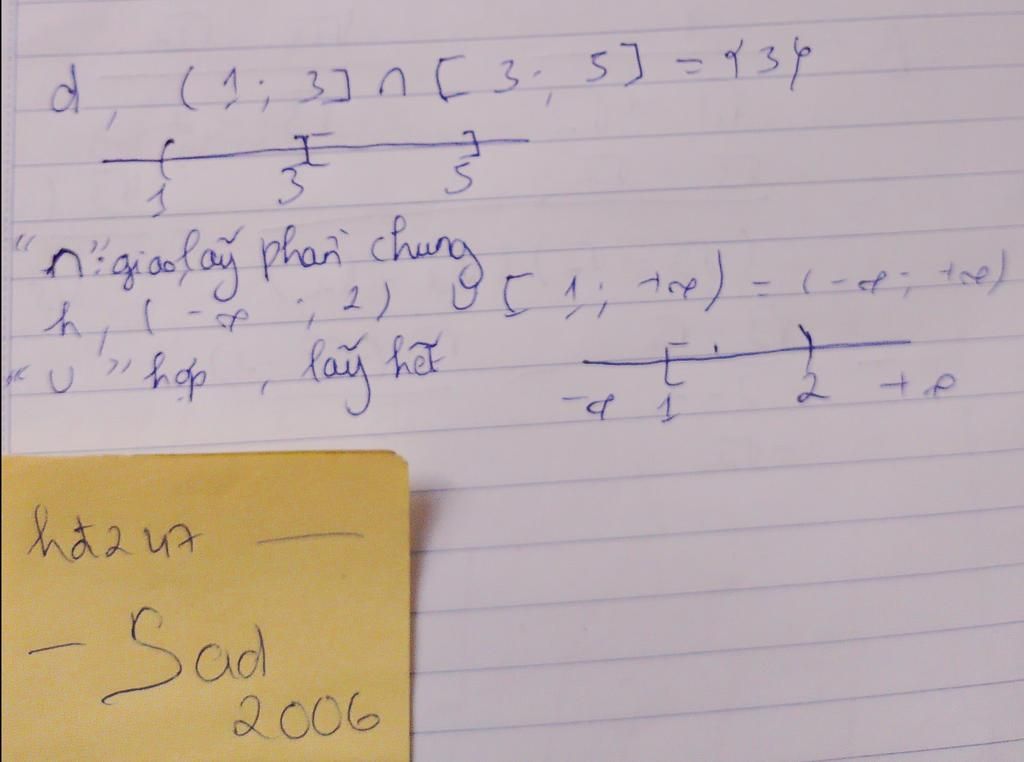 d, (1; 3] ∩ [3; 5] = {3}
1 3 5
"∩": giao, lấy phần chung
h, (-∞; 2) ∪ [1; +∞) = (-∞; +∞)
"∪" hợp, lấy hết
-∞ 1 2 +∞
hđ247
- Sad
2006